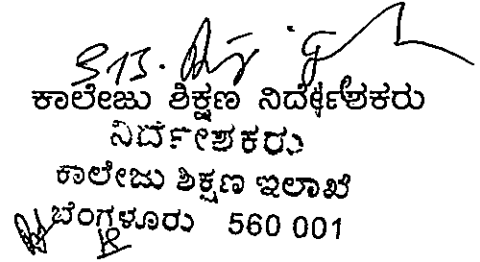 ಕಾಲೇಜು ಶಿಕ್ಷಣ ನಿರ್ದೇಶಕರು
ನಿರ್ದೇಶಕರು
ಕಾಲೇಜು ಶಿಕ್ಷಣ ಇಲಾಖೆ
ಬೆಂಗಳೂರು 560 001